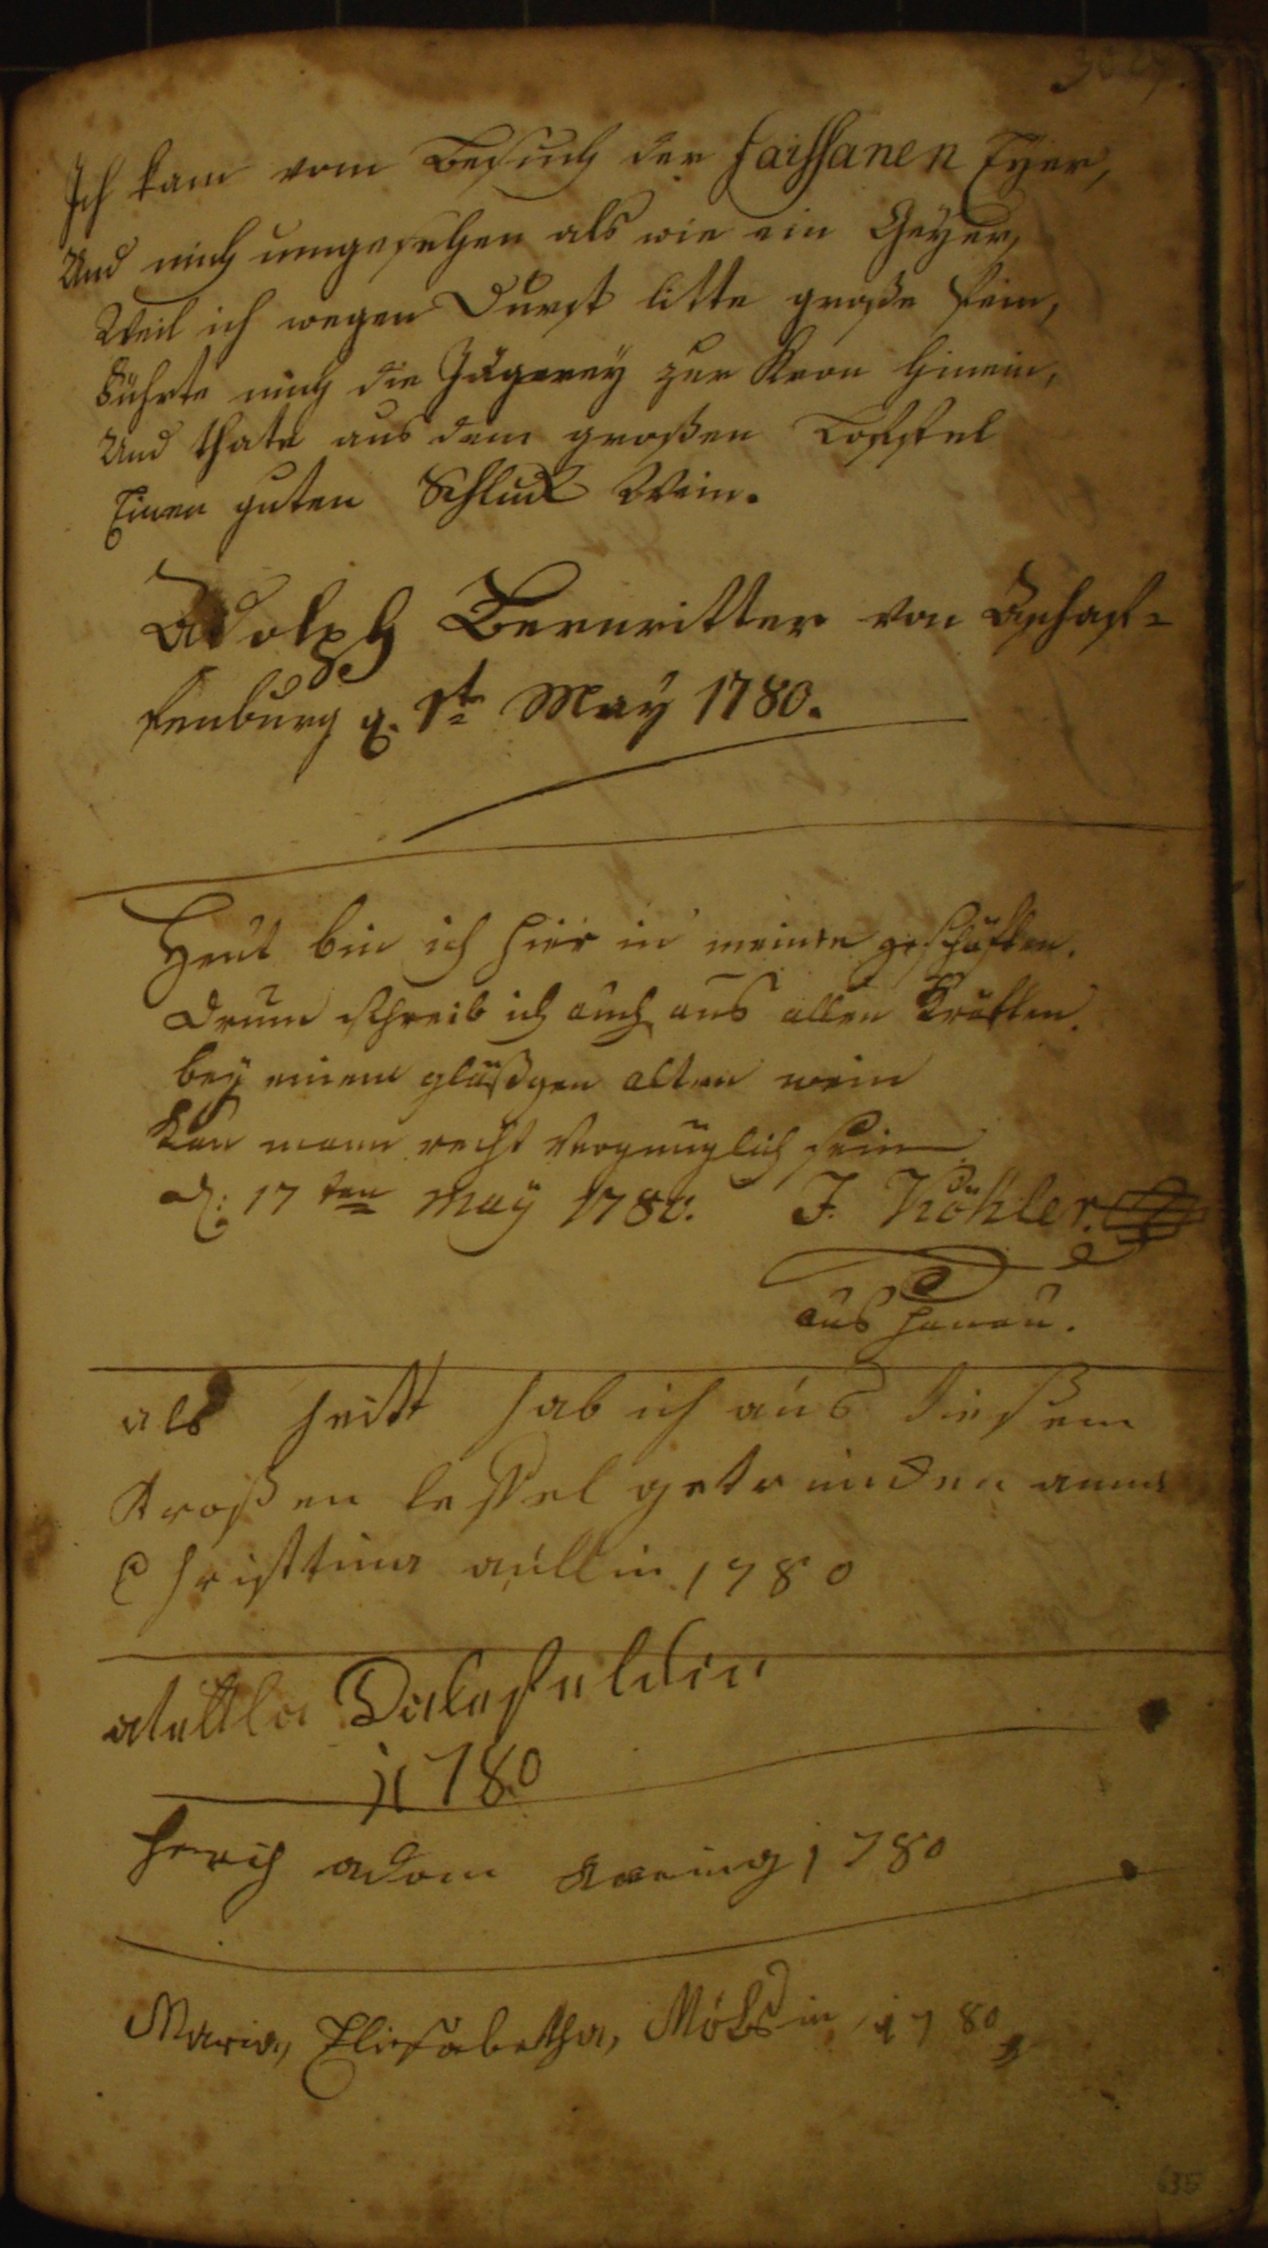 Ich kam vom Besuch der faissanen Eyer,
Und mich umgesehen als wie ein Geyer,
Weil ich wegen Durst litte große Pein,
Führte mich die Jägerey zur Kron hinein,
Und thate aus dem großen Loffel
Einen guten Schluck Wein.
Adolph Bernritter von Aschaf-
fenburg d. 1t May 1780.
Heut bin ich hier in meinen geschäften.
Drum schreib ich auch aus allen Kräften.
bey einem gläßgen alten wein
Kan mann recht Vergnüglich sein
d: 17 ten May 1780. J. Köhler.
aus Hanau.
als heitt hab ich aus diesem
Kroßen leffel getruncken anna
Christtina aullin 1780
1780
adam 1780
Maria, Eliesabetha, 1780